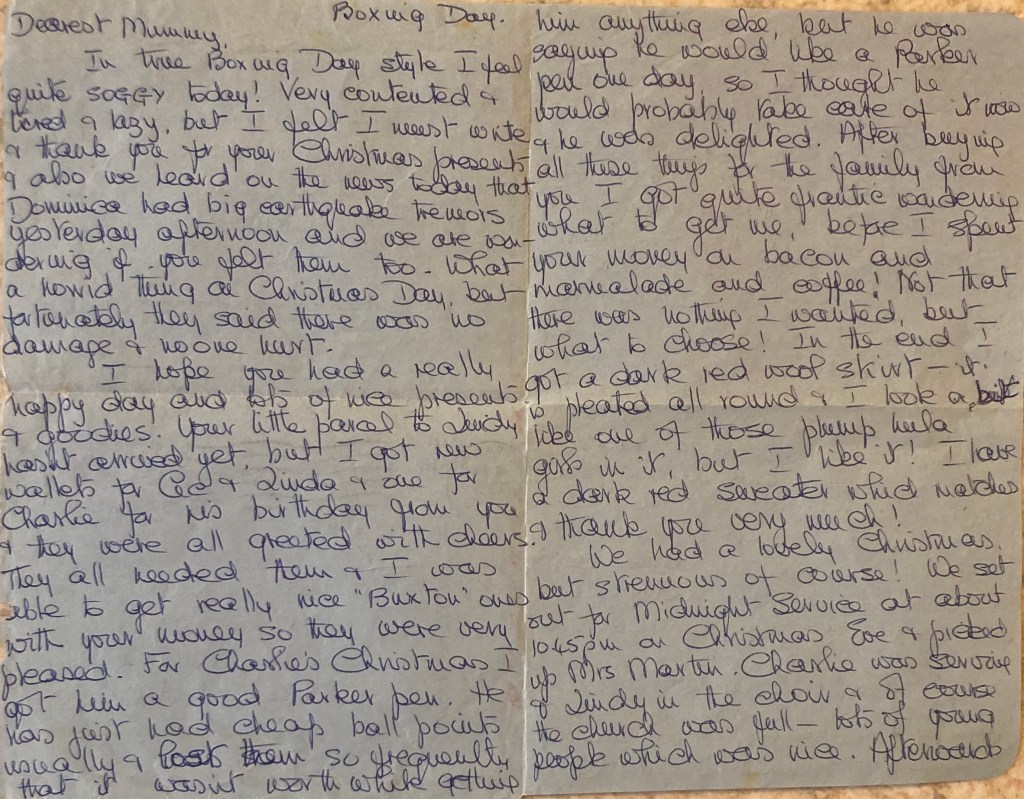 Boxing Day.
Dearest Mummy,
In true Boxing Day style I feel
quite soggy today! Very contented &
tired & lazy, but I felt I must write
& thank you for your Christmas presents
& also we heard on the news today that
Dominica had big earthquake tremors
yesterday afternoon and we are won-
dering if you felt them too. What
a horrid thing on Christmas Day, but
fortunately they said there was no
damage & no one hurt.
I hope you had a really
happy day and lots of nice presents
& goodies. Your little parcel to Lindy
hasn't arrived yet, but I got new
wallets for Cec & Linda & one for
Charlie for his birthday from you
& they were all greeted with cheers.
They all needed them & I was
able to get really nice "Buxton" ones
with your money so they were very
pleased. For Charlie's Christmas I
got him a good Parker pen. He
has just had cheap ball points
usually & lost them so frequently
that it wasn't worth while getting
him anything else, but he was
saying he would like a Parker
pen one day, so I thought he
would probably take care of it now
& he was delighted. After buying
all these things for the family from
you I got quite frantic wondering
what to get me, before I spent
your money on bacon and
marmalade and coffee! Not that
there was nothing I wanted, but
what to choose! In the end I
got a dark red wool skirt – it
is pleated all round & I look a bit
like one of those plump hula
girls in it, but I like it! I have
a dark red sweater which matches
& thank you very much!
We had a lovely Christmas,
but strenuous of course! We set
out for Midnight Service at about
10.45pm on Christmas Eve & picked
up Mrs Martin. Charlie was serving
& Lindy in the choir & of course
the church was full – lots of young
people which was nice. Afterwards